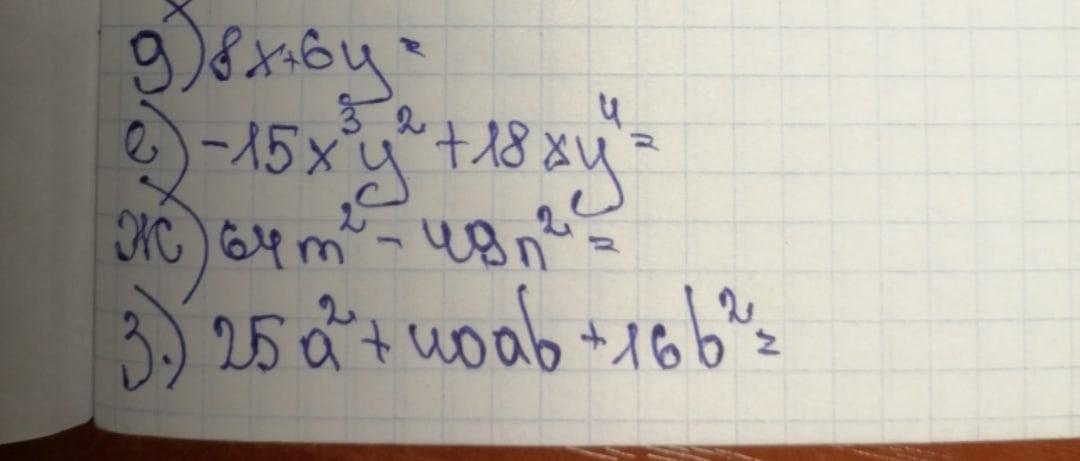 д) 8x+6y=
е) -15x³y²+18xy⁴=
ж) 64m²-49n²=
з.) 25a²+40ab+16b²=